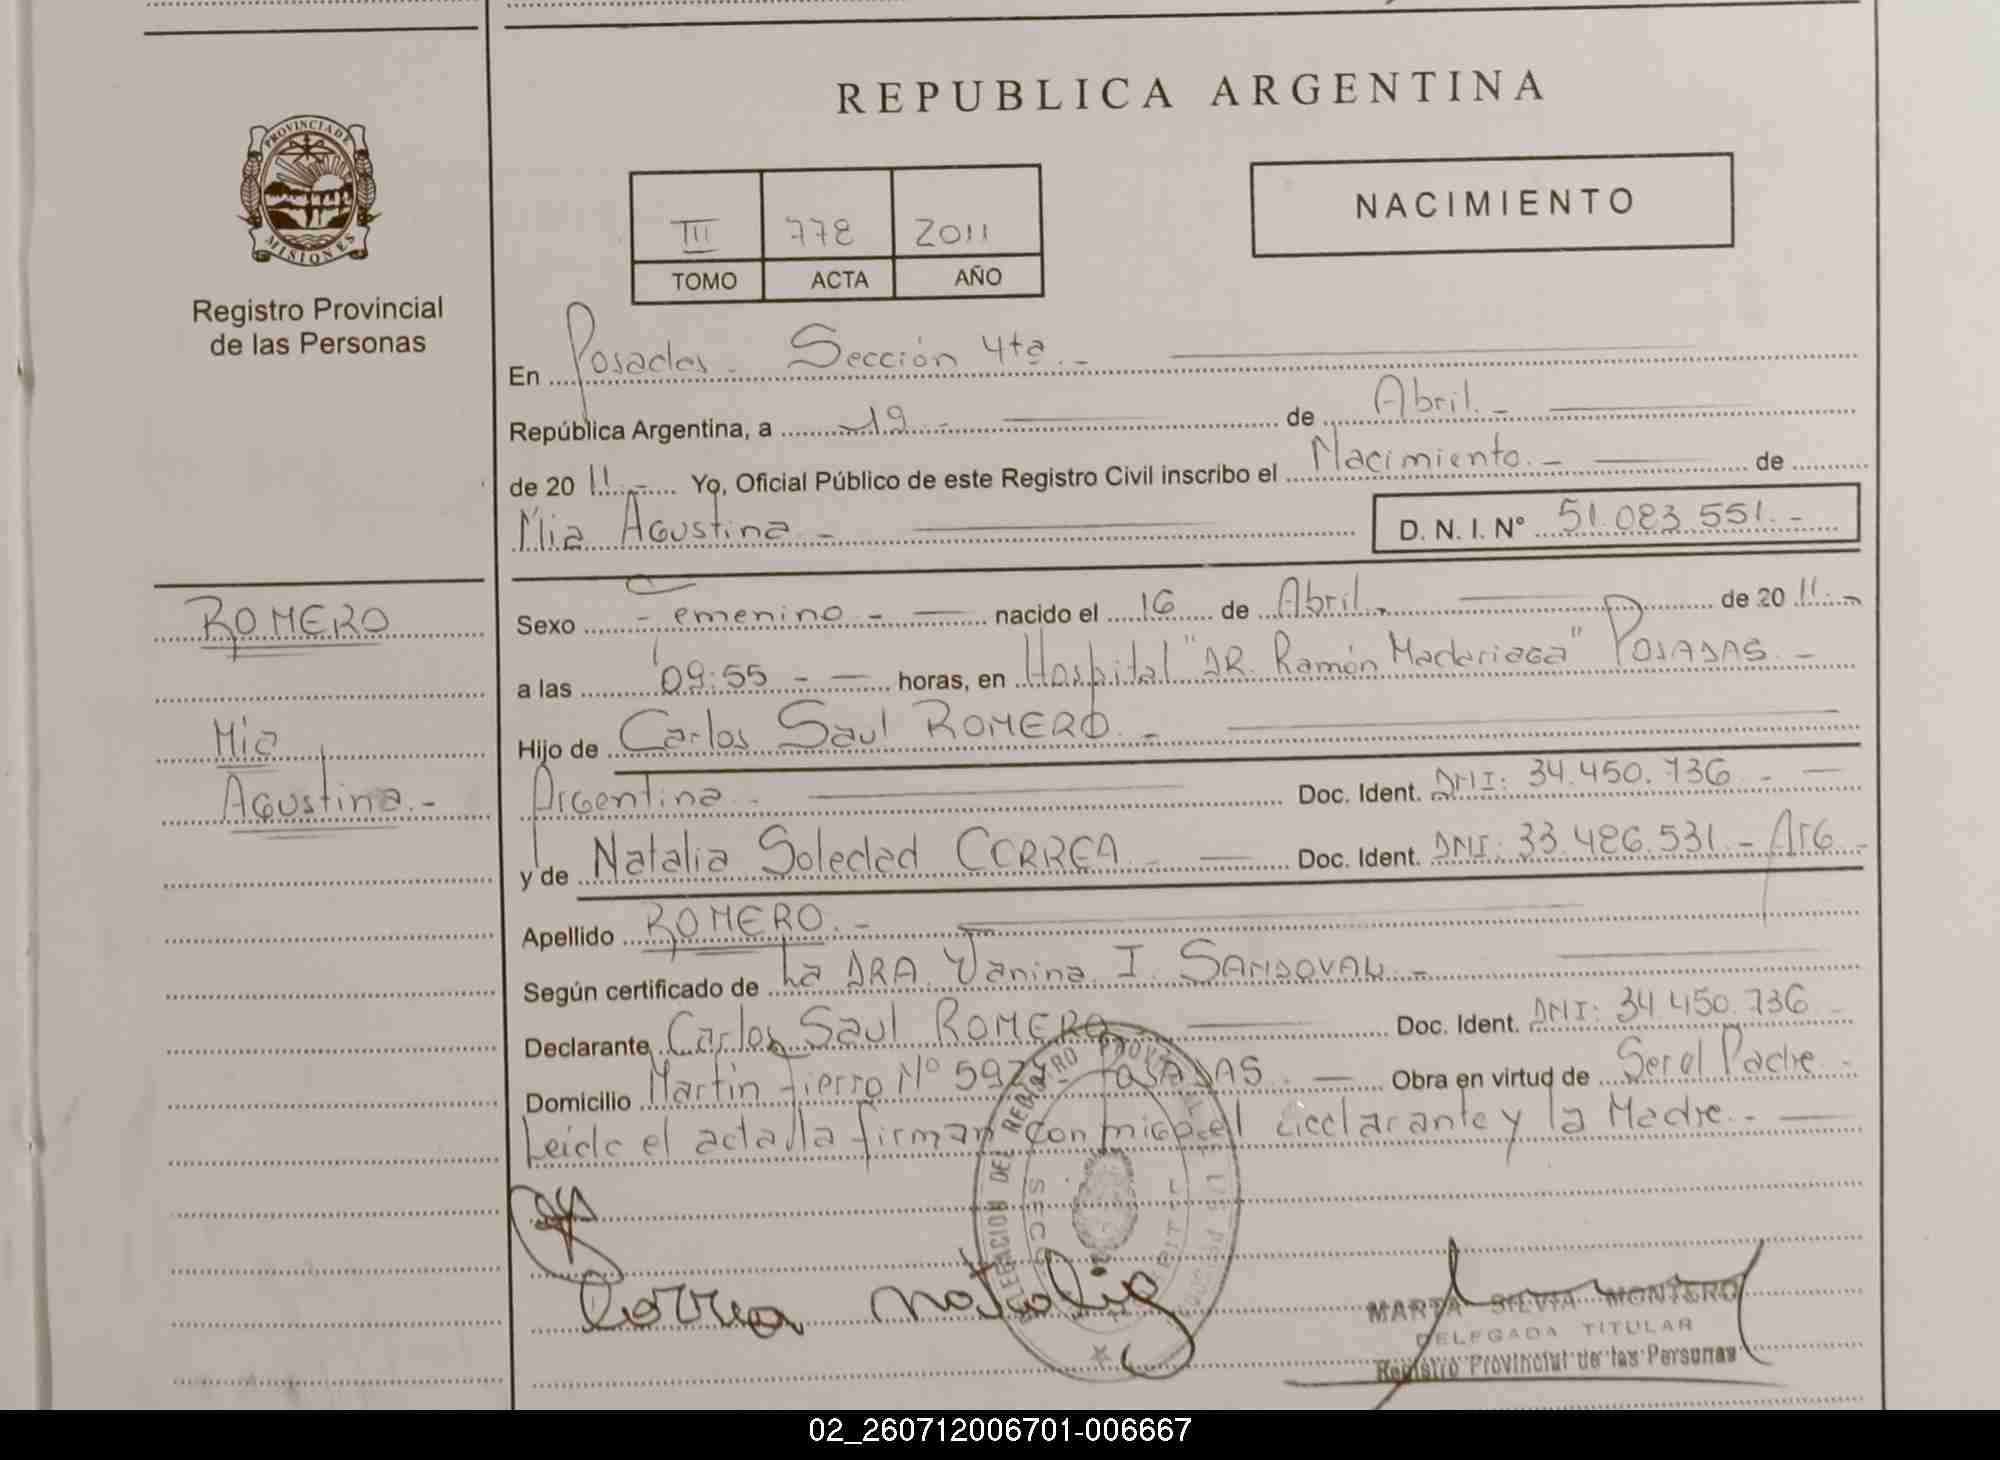 REPUBLICA ARGENTINA
PROVINCIA DE
MISIONES
Registro Provincial
de las Personas
III 778 2011
TOMO ACTA AÑO
NACIMIENTO
En Posadas - Sección 4ta. -
República Argentina, a 19 - de Abril. -
de 20 11. - Yo, Oficial Público de este Registro Civil inscribo el Nacimiento. - de
Mia Agustina. - D. N. I. N° 51.083.551. -
ROMERO
Mia
Agustina. -
Sexo Femenino - nacido el 16 de Abril. de 20 11. -
a las 09:55 - horas, en Hospital "DR. Ramón Madariaga" POSADAS. -
Hijo de Carlos Saul ROMERO. -
Argentina. - Doc. Ident. DNI: 34.450.736 -
y de Natalia Soledad CORREA. - Doc. Ident. DNI: 33.486.531. - Arg -
Apellido ROMERO. -
Según certificado de La DRA. Vanina I. SANDOVAL. -
Declarante Carlos Saul ROMERO Doc. Ident. DNI: 34.450.736 -
Domicilio Martin Fierro N° POSADAS. - Obra en virtud de Ser el Padre. -
Leida el acta la firman con migo el declarante y la Madre. -
DELEGACION DEL REGISTRO
Correa Natalia
MARTA SILVIA MONTERO
DELEGADA TITULAR
Registro Provincial de las Personas
02_260712006701-006667